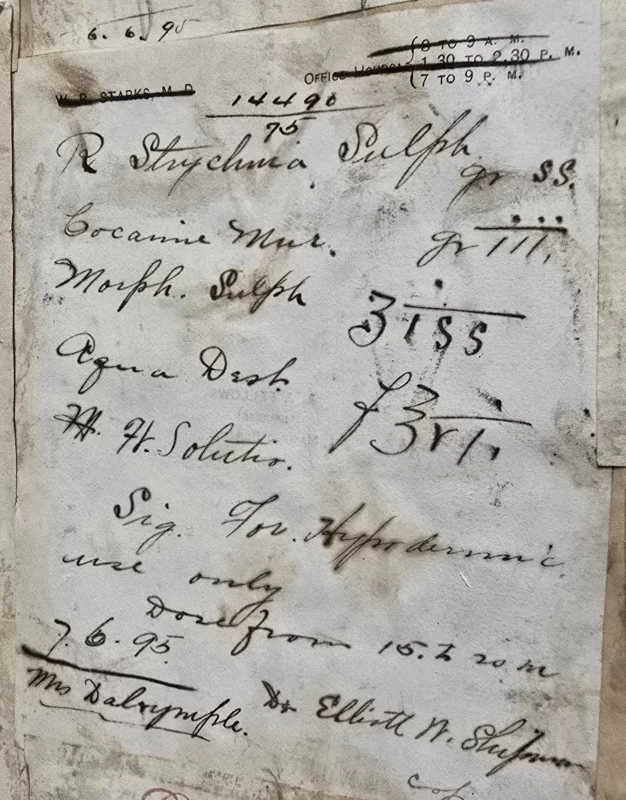 6. 6. 95
8 TO 9 A. M.
OFFICE HOURS 1.30 TO 2.30 P. M.
7 TO 9 P. M.
W. P. STARKS, M. D.
14490
75
℞ Strychnia. Sulph gr ss.
Cocaine Mur. gr iii.
Morph. Sulph ʒ iss
Aqua Dest. f ʒ vi.
Ft. Solutio.
Sig. For Hypodermic
use only
Dose from 15. to 20 m
7. 6. 95.
Mrs Dalrymple.
Dr Elliott W. Shipman